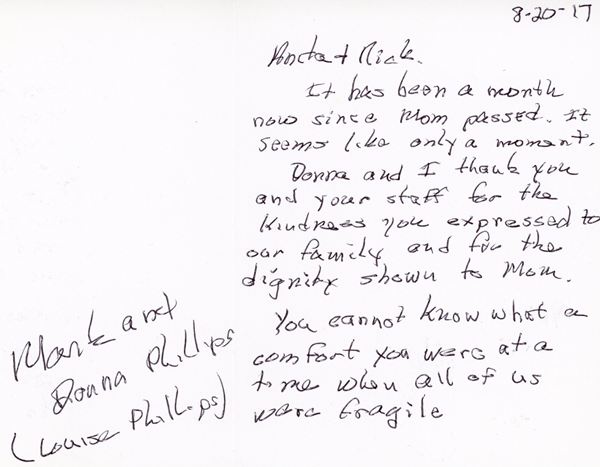 8-20-17
Anita + Rick.
It has been a month
now since Mom passed. It
seems like only a moment.
Donna and I thank you
and your staff for the
kindness you expressed to
our family and for the
dignity shown to Mom.
You cannot know what a
comfort you were at a
time when all of us
were fragile
Mark and
Donna Phillips
(Louise Phillips)